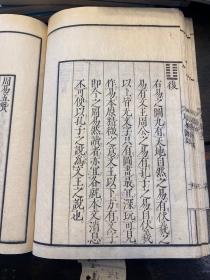 復
右易之圖九有天地自然之易有伏羲之
易有文王周公之易有孔子之易自伏羲
以上皆无文字只有圖畫最宜深玩可見
作易本原精微之意文王以下方有文字
即今之周易然讀者亦宜各就本文消息
不可便以孔子之說為文王之說也
周易五贊